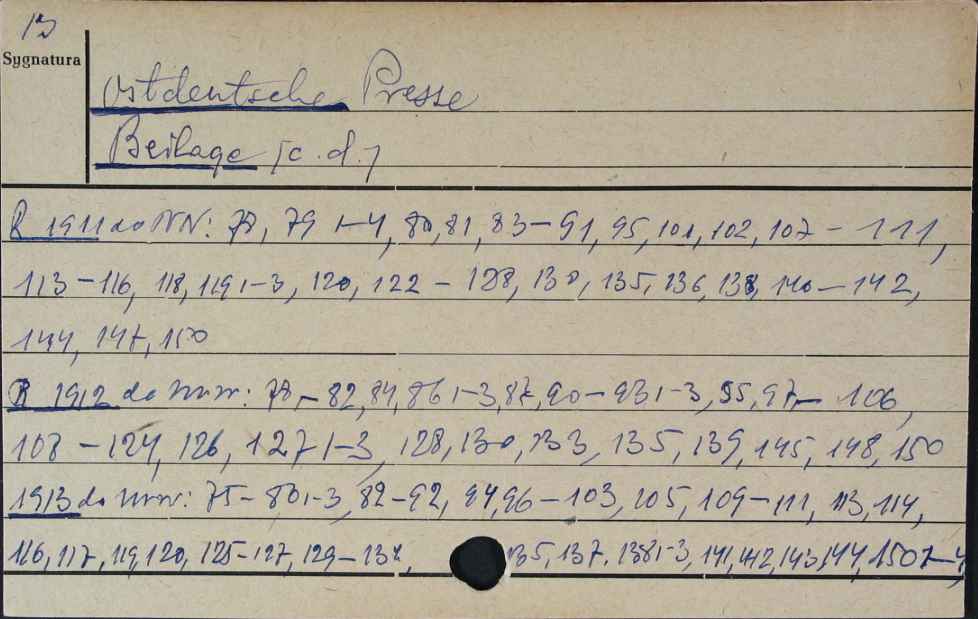 13
Sygnatura
Ostdeutsche Presse
Beilage [c.d.]
R 1911 do NN: 78, 79 1-4, 80, 81, 83-91, 95, 101, 102, 107-111,
113-116, 118, 119 1-3, 120, 122-128, 130, 135, 136, 138, 140-142,
144, 147, 150
R 1912 do nrnr: 78-82, 84, 86 1-3, 87, 90-93 1-3, 95, 97-106,
108-124, 126, 127 1-3, 128, 130, 133, 135, 139, 145, 148, 150
1913 do nrnr: 75-80 1-3, 82-92, 94, 96-103, 105, 109-111, 113, 114,
116, 117, 119, 120, 125-127, 129-132, 135, 137, 138 1-3, 141, 142, 143, 144, 150